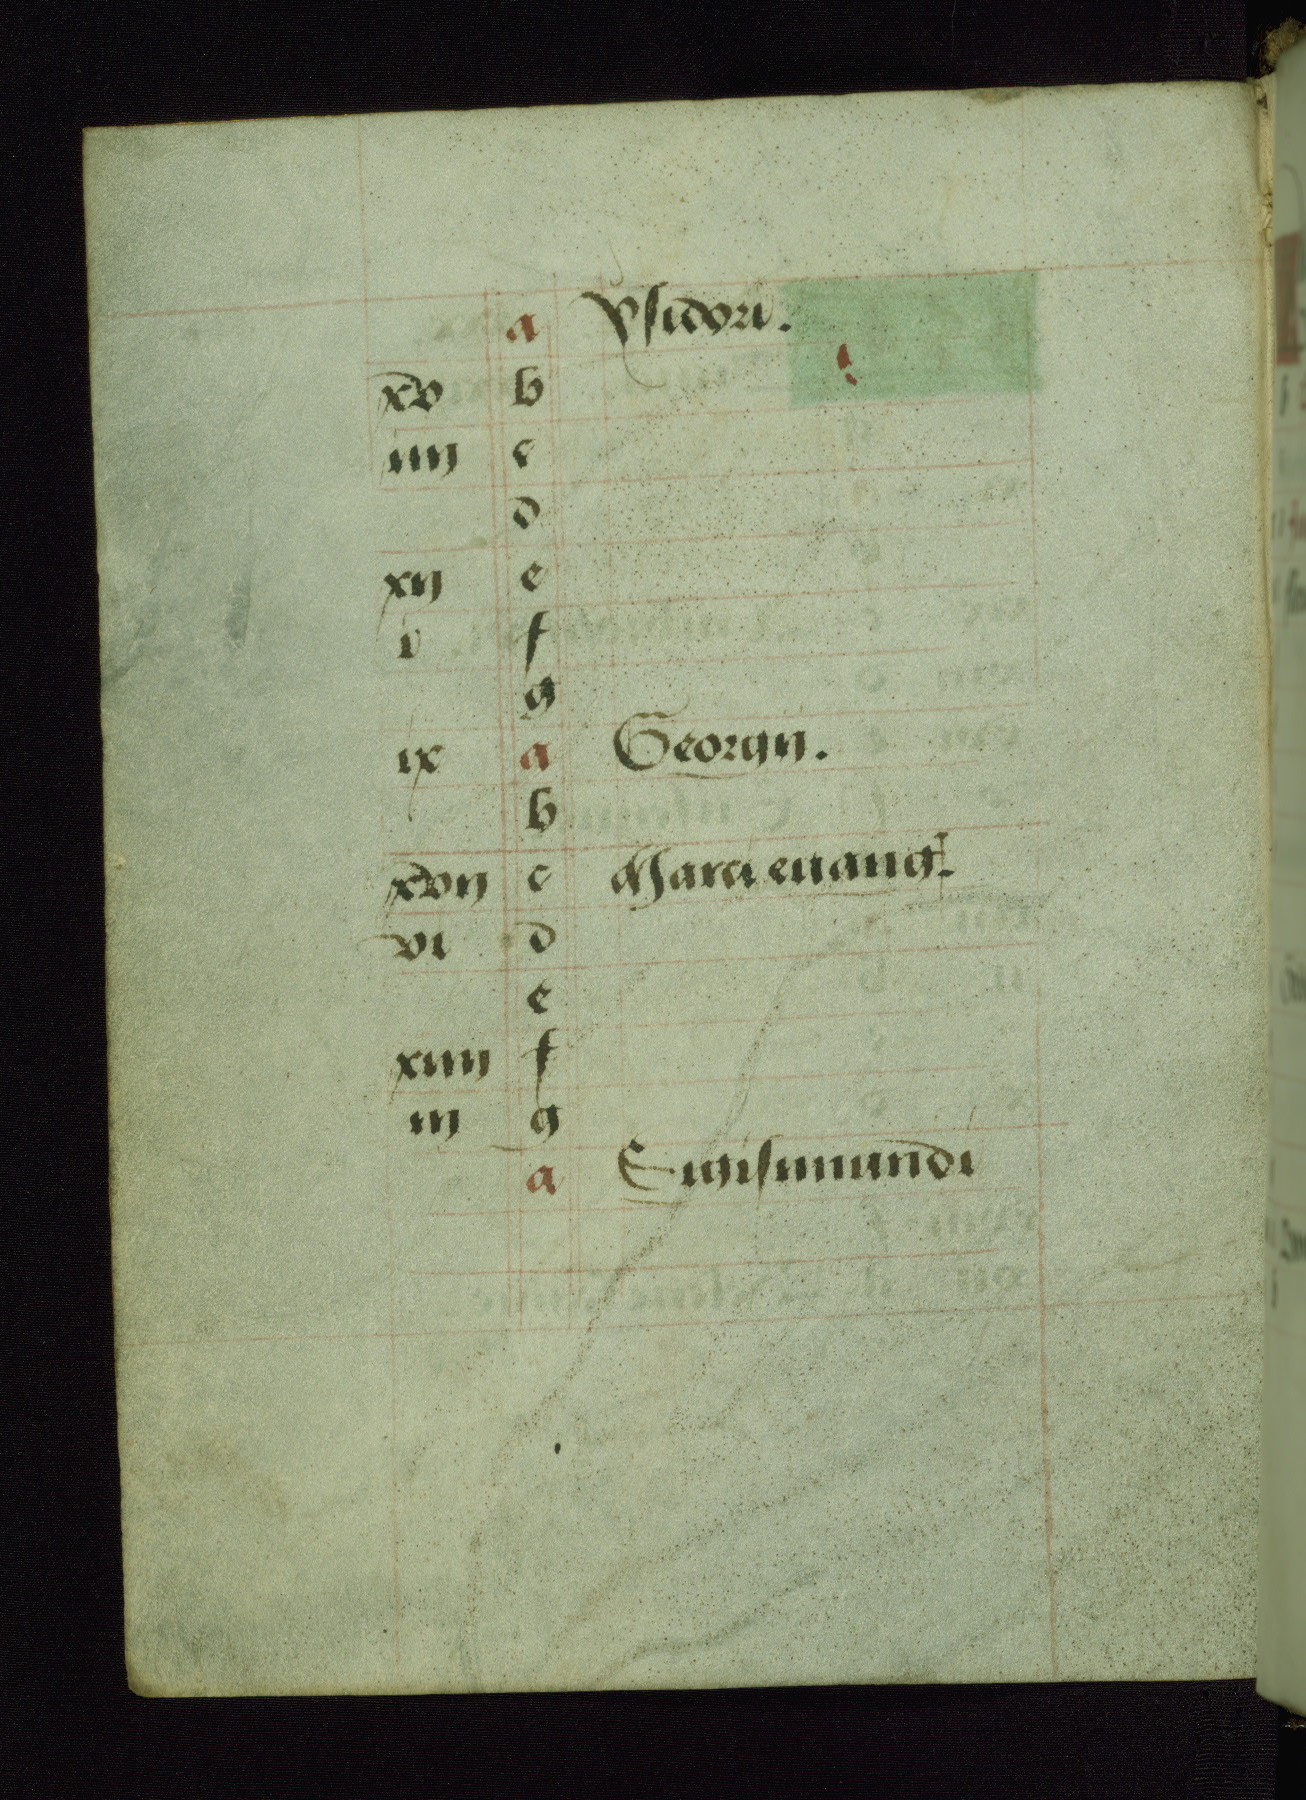 a Ysidori.
xv b
iiij c
d
xij e
i f
g
ix a Georgij.
b
xvij c Marci euang.
vi d
e
xiiij f
iij g
a Sigismundi